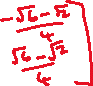 -√6-√2/4
√6-√2/4